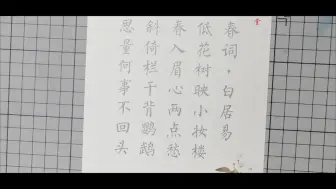 春词·白居易
低花树映小妆楼
春入眉心两点愁
斜倚栏干背鹦鹉
思量何事不回头